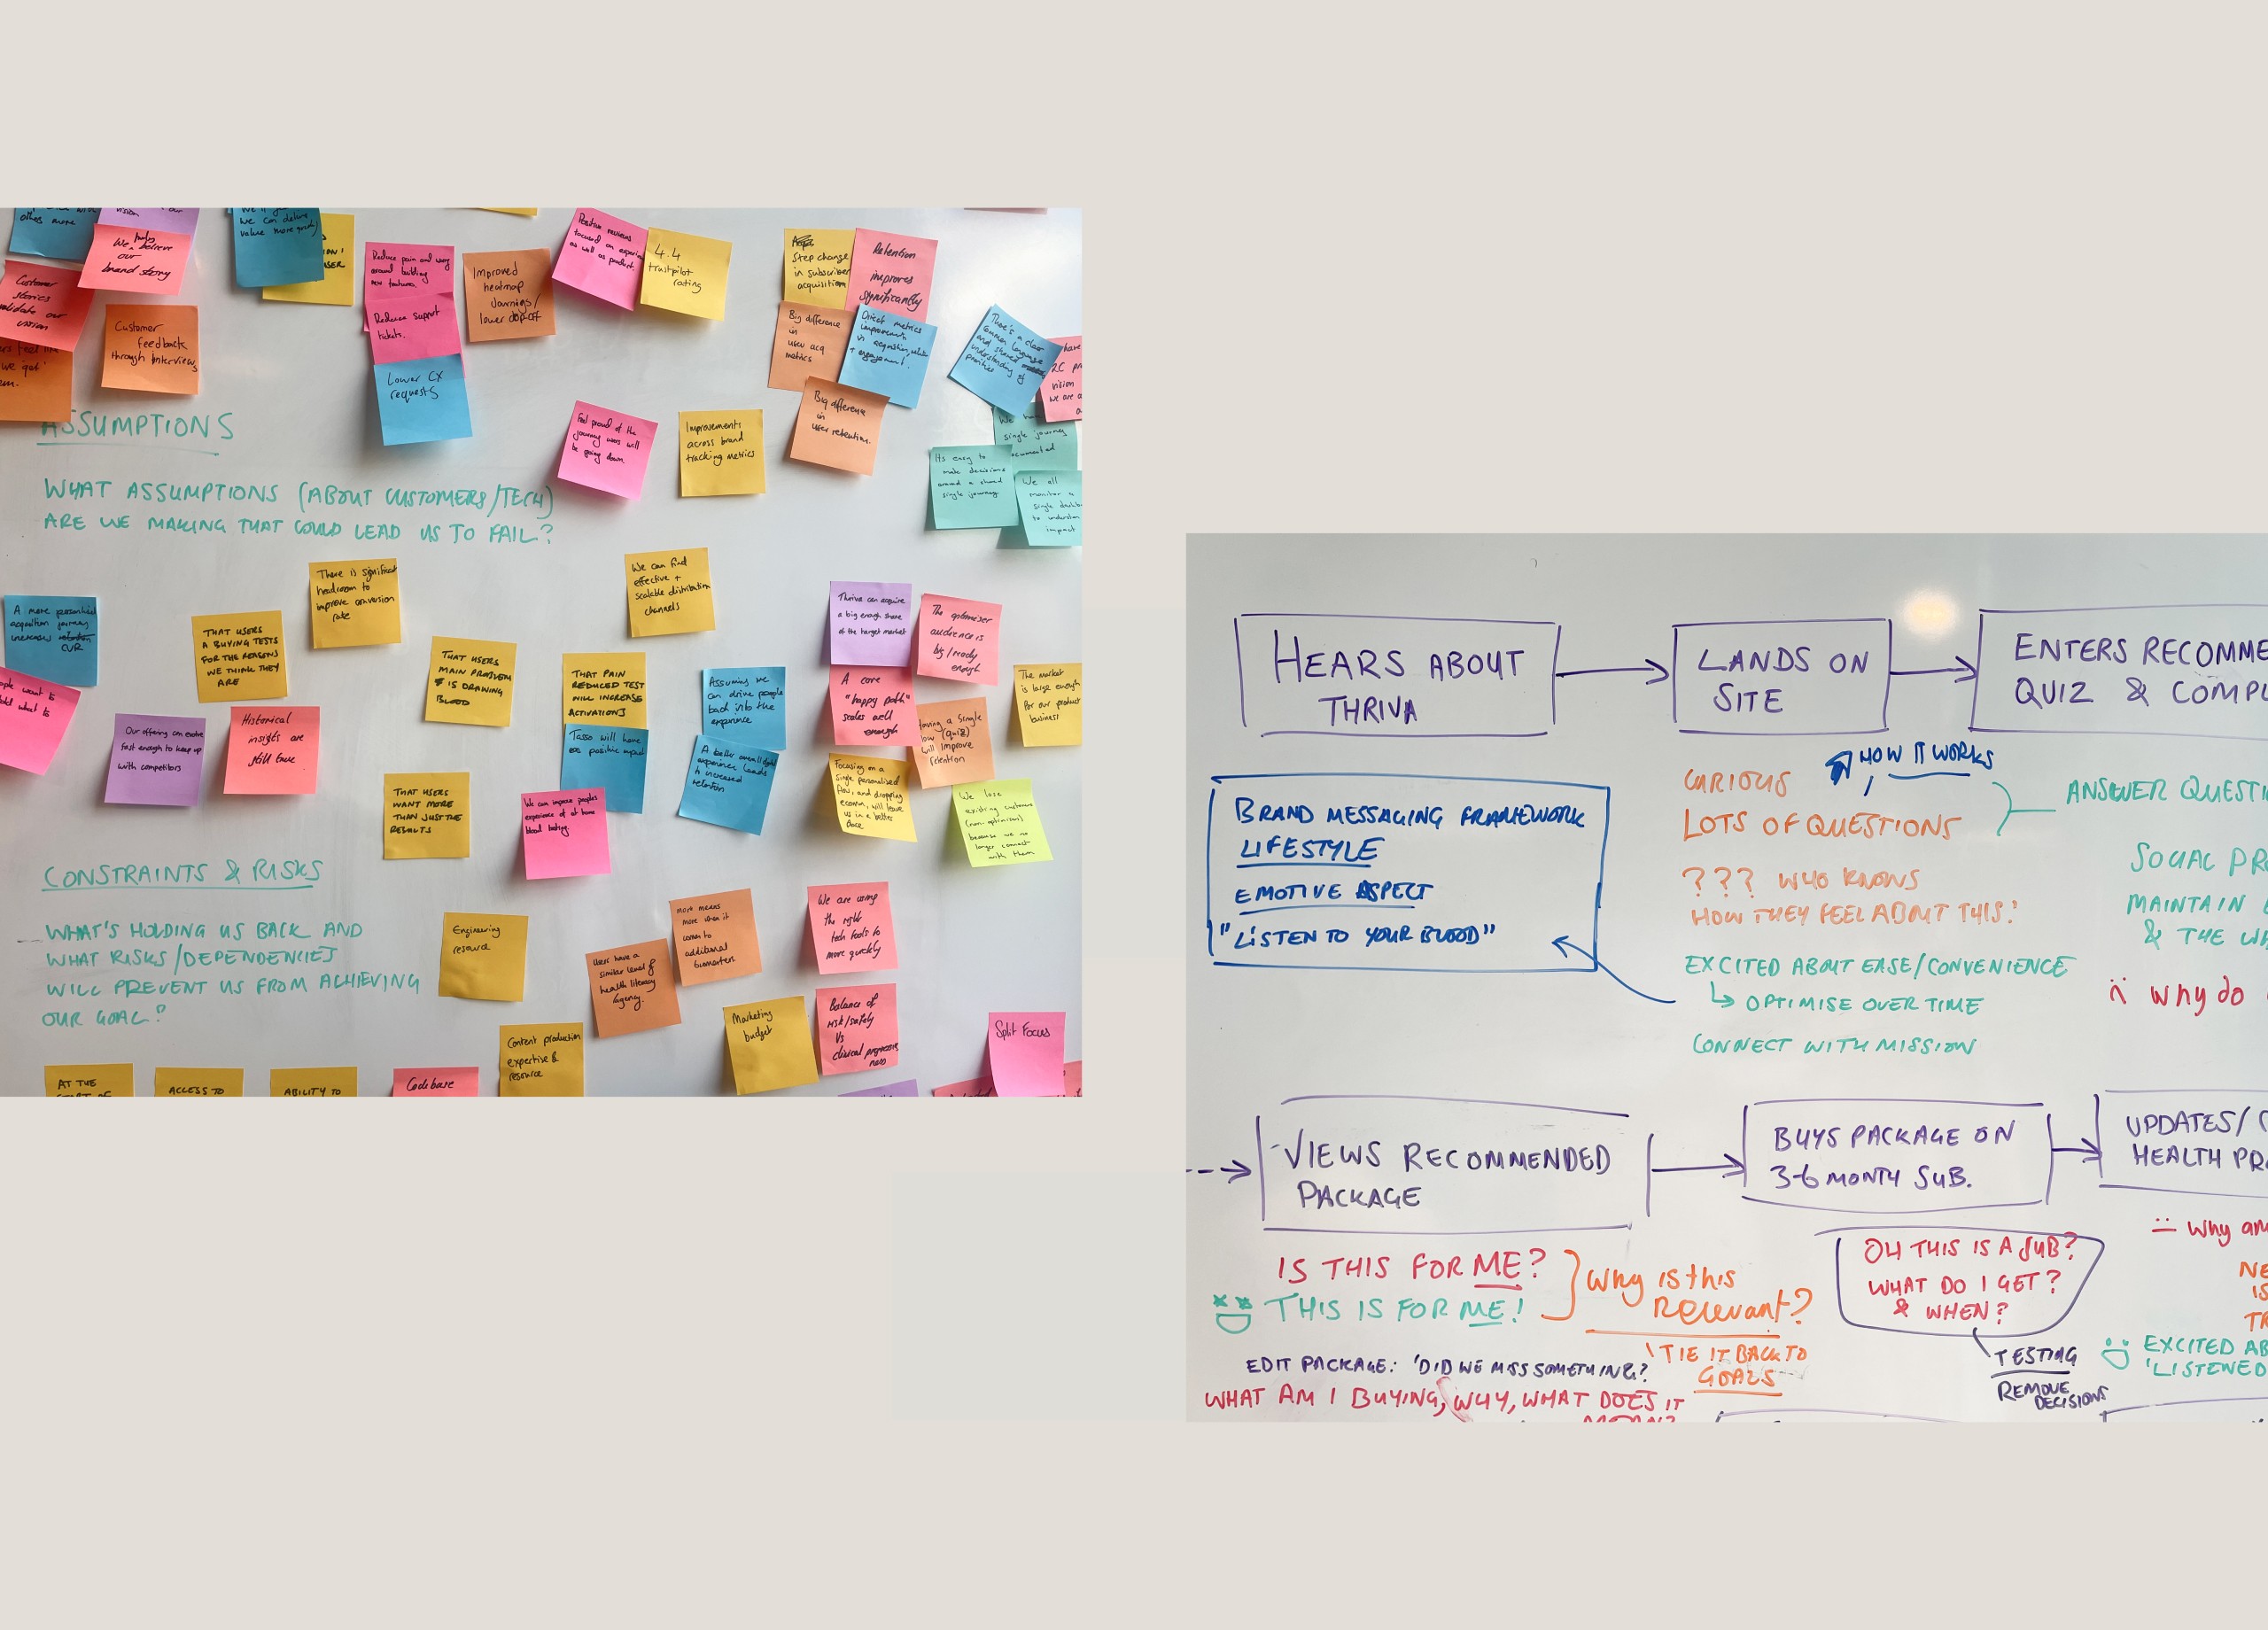 others more
vision
We believe
our
brand story
We
we can deliver
value more
Customer
stories
validate our
vision
we get
Customer
feedback
through Interviews
Reduce support
tickets.
Lower CX
requests
Improved
heatmap
Journies/
lower drop off
Positive reviews
focused on
as well as product.
4.4
trustpilot
rating
Step change
in subscriber
acquisition
Retention
improves
significantly
Big difference
in
user acq
metrics
Direct metrics
improvements
in acquisition,
+ engagement.
Big difference
in
user retention.
There's a clear
common language
and shared
understanding of
priorities
Feel proud of the
journey users will
be going down.
Improvements
across brand
tracking metrics
Its easy to
make decisions
around a shared
single journey.
single journey
We all
monitor a
single
to understand
impact
ASSUMPTIONS
WHAT ASSUMPTIONS (ABOUT CUSTOMERS/TECH)
ARE WE MAKING THAT COULD LEAD US TO FAIL?
A more personalised
acquisition journey
increases
CVR
THAT USERS
A BUYING TESTS
FOR THE REASONS
WE THINK THEY
ARE
There is significant
headroom to
improve conversion
rate
THAT USERS
MAIN PROBLEM
IS DRAWING
BLOOD
We can find
effective +
scalable distribution
channels
THAT PAIN
REDUCED TEST
WILL INCREASE
ACTIVATIONS
Tasso will have
positive impact
Assuming we
can drive people
back into the
experience
A better overall
experience leads
to increased
retention
Thriva can acquire
a big enough share
of the target market
The optimiser
audience is
big/ready
enough
A core
"happy path"
scales well
enough
Having a single
flow (quiz)
will improve
retention
The market
is large enough
for our product
business
Focusing on a
single personalised
flow, and dropping
ecomm, will leave
us in a better
place
We lose
existing customers
(non-optimisers)
because we no
longer connect
with them
Our offering can evolve
fast enough to keep up
with competitors
Historical
insights are
still true
THAT USERS
WANT MORE
THAN JUST THE
RESULTS
We can improve peoples
experience of at home
blood testing.
CONSTRAINTS & RISKS
WHAT'S HOLDING US BACK AND
WHAT RISKS/DEPENDENCIES
WILL PREVENT US FROM ACHIEVING
OUR GOAL?
Engineering
resource
Users have a
similar level of
health literacy
/agency.
more means
more when it
comes to
additional
biomarkers
We are using
the right
tech tools to
move quickly
Content production
expertise &
resource
Marketing
budget
Balance of
risk/safety
Vs
clinical progressive
ness
Split Focus
AT THE
START OF
ACCESS TO
ABILITY TO
Codebase
HEARS ABOUT
THRIVA
LANDS ON
SITE
ENTERS RECOMME
QUIZ & COMPL
HOW IT WORKS
BRAND MESSAGING FRAMEWORK
LIFESTYLE
EMOTIVE ASPECT
"LISTEN TO YOUR BLOOD"
CURIOUS
LOTS OF QUESTIONS
??? WHO KNOWS
HOW THEY FEEL ABOUT THIS!
EXCITED ABOUT EASE/CONVENIENCE
OPTIMISE OVER TIME
CONNECT WITH MISSION
ANSWER QUESTI
SOCIAL PR
MAINTAIN
& THE W
why do
VIEWS RECOMMENDED
PACKAGE
BUYS PACKAGE ON
3-6 MONTH SUB.
UPDATES/
HEALTH PR
IS THIS FOR ME?
THIS IS FOR ME!
Why is this
Relevant?
TIE IT BACK TO
GOALS
EDIT PACKAGE: 'DID WE MISS SOMETHING?
WHAT AM I BUYING, WHY, WHAT DOES IT
MEAN?
OH THIS IS A SUB?
WHAT DO I GET?
& WHEN?
TESTING
REMOVE
DECISIONS
Why am
NE
IS
TR
EXCITED AB
'LISTENED